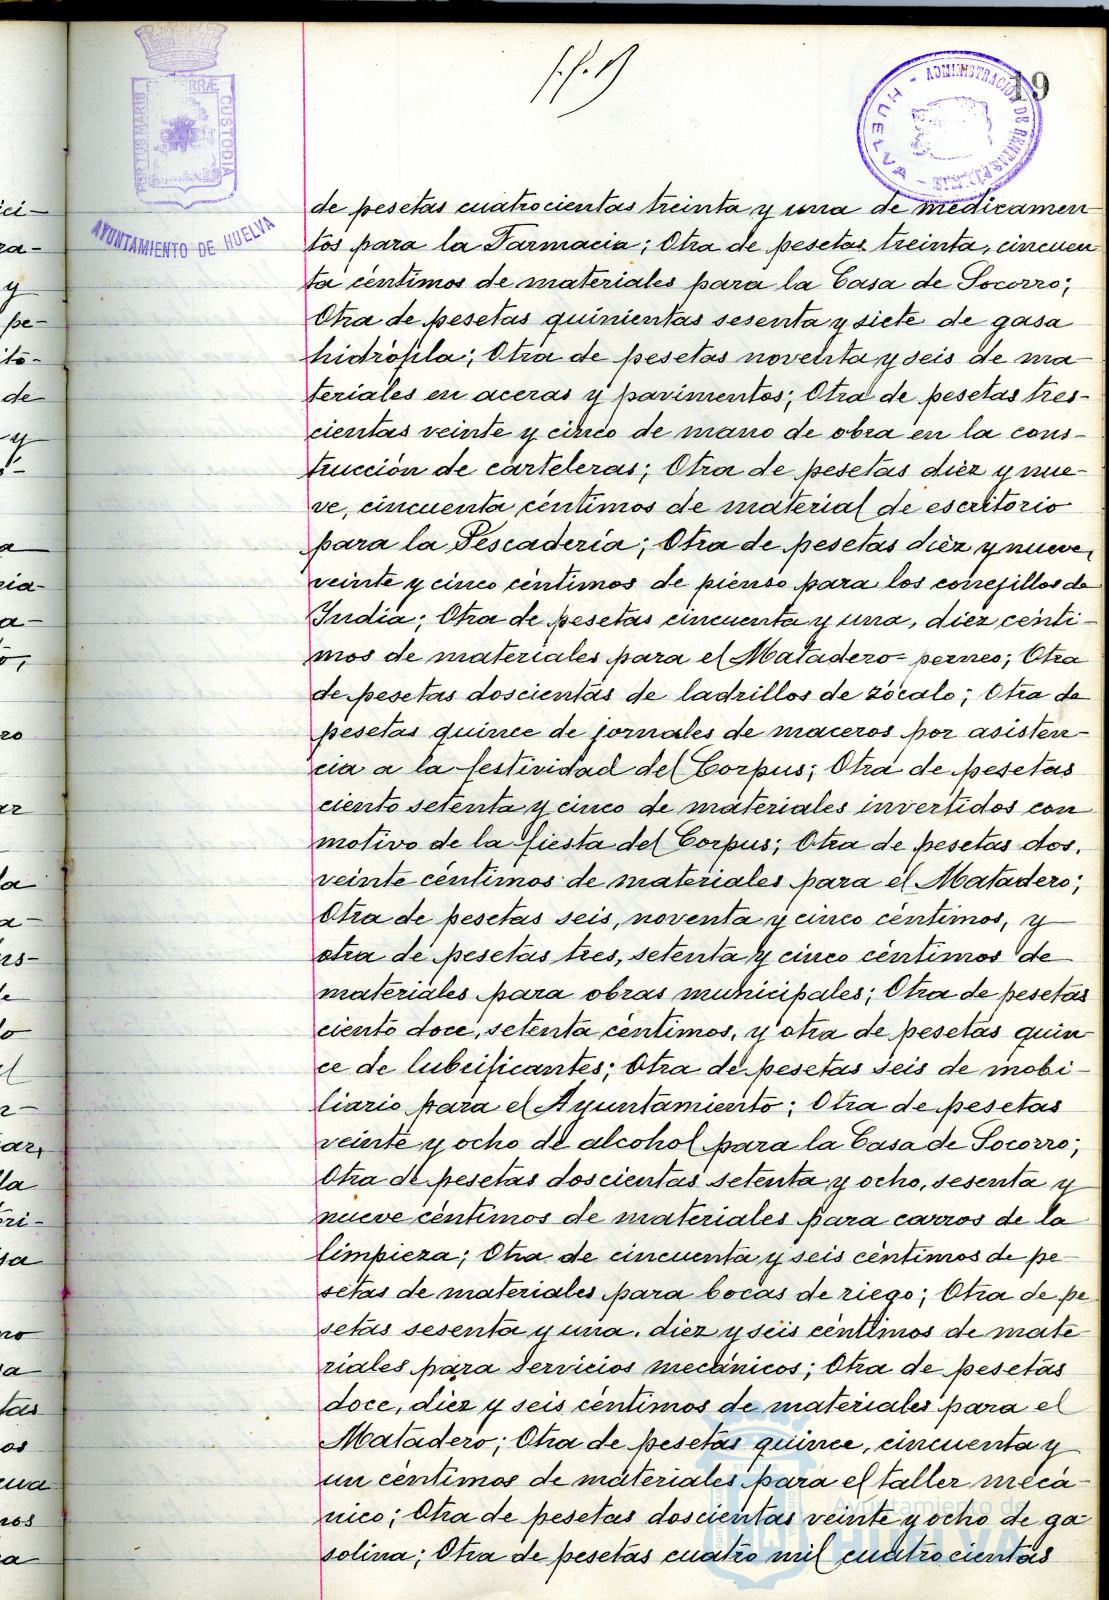 19
ADMINISTRACIÓN DE RENTAS PÚBLICAS - HUELVA -
PORTUS MARIS ET TERRÆ CUSTODIA
AYUNTAMIENTO DE HUELVA
de pesetas cuatrocientas treinta y una de medicamen
tos para la Farmacia; Otra de pesetas treinta, cincuen
ta céntimos de materiales para la Casa de Socorro;
Otra de pesetas quinientas sesenta y siete de gasa
hidrófila; Otra de pesetas noventa y seis de ma
teriales en aceras y pavimentos; Otra de pesetas tres-
cientas veinte y cinco de mano de obra en la cons-
trucción de carteleras; Otra de pesetas diez y nue-
ve, cincuenta céntimos de material de escritorio
para la Pescadería; Otra de pesetas diez y nueve,
veinte y cinco céntimos de pienso para los conejillos de
India; Otra de pesetas cincuenta y una, diez cénti-
mos de materiales para el Matadero-perneo; Otra
de pesetas doscientas de ladrillos de zócalo; Otra de
pesetas quince de jornales de maceros por asisten-
cia a la festividad del Corpus; Otra de pesetas
ciento setenta y cinco de materiales invertidos con
motivo de la fiesta del Corpus; Otra de pesetas dos,
veinte céntimos de materiales para el Matadero;
Otra de pesetas seis, noventa y cinco céntimos, y
otra de pesetas tres, setenta y cinco céntimos de
materiales para obras municipales; Otra de pesetas
ciento doce, setenta céntimos, y otra de pesetas quin-
ce de lubrificantes; Otra de pesetas seis de mobi-
liario para el Ayuntamiento; Otra de pesetas
veinte y ocho de alcohol para la Casa de Socorro;
Otra de pesetas doscientas setenta y ocho, sesenta y
nueve céntimos de materiales para carros de la
limpieza; Otra de cincuenta y seis céntimos de pe-
setas de materiales para bocas de riego; Otra de pe
setas sesenta y una, diez y seis céntimos de mate-
riales para servicios mecánicos; Otra de pesetas
doce, diez y seis céntimos de materiales para el
Matadero; Otra de pesetas quince, cincuenta y
un céntimos de materiales para el taller mecá-
nico; Otra de pesetas doscientas veinte y ocho de ga-
solina; Otra de pesetas cuatro mil cuatrocientas
Ayuntamiento de
HUELVA